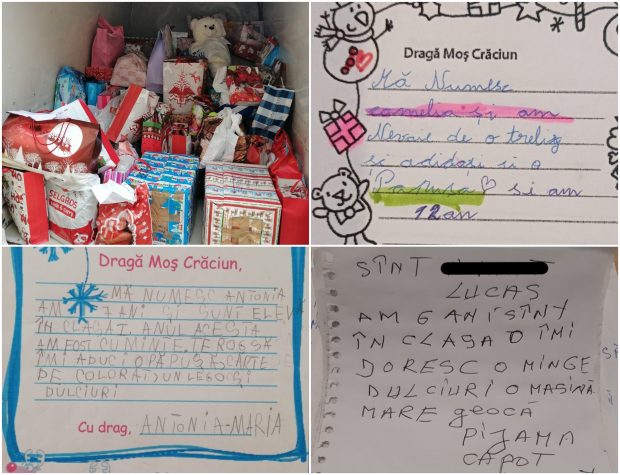 SELGROS
Dragă Moș Crăciun
Mă Numesc
camelia și am
Nevoie de o treling
și adidași și o
Păpușă și am
12 an
Dragă Moş Crăciun,
MĂ NUMESC ANTONIA
AM 7 ANI ȘI SUNT ELEVĂ
ÎN CLASA I. ANUL ACESTA
AM FOST CUMINTE. TE ROGSĂ
ÎMI ADUCI O PĂPUȘĂ, CARTE
DE COLORAT, UN LEGO ȘI
DULCIURI
Cu drag, ANTONIA-MARIA
SÎNT
LUCAS
AM 6 ANI SÎNT
ÎN CLASA 0 ÎMI
DORESC O MINGE
DULCIURI O MAȘINĂ
MARE geOCĂ
PIJAMA
CAPOT